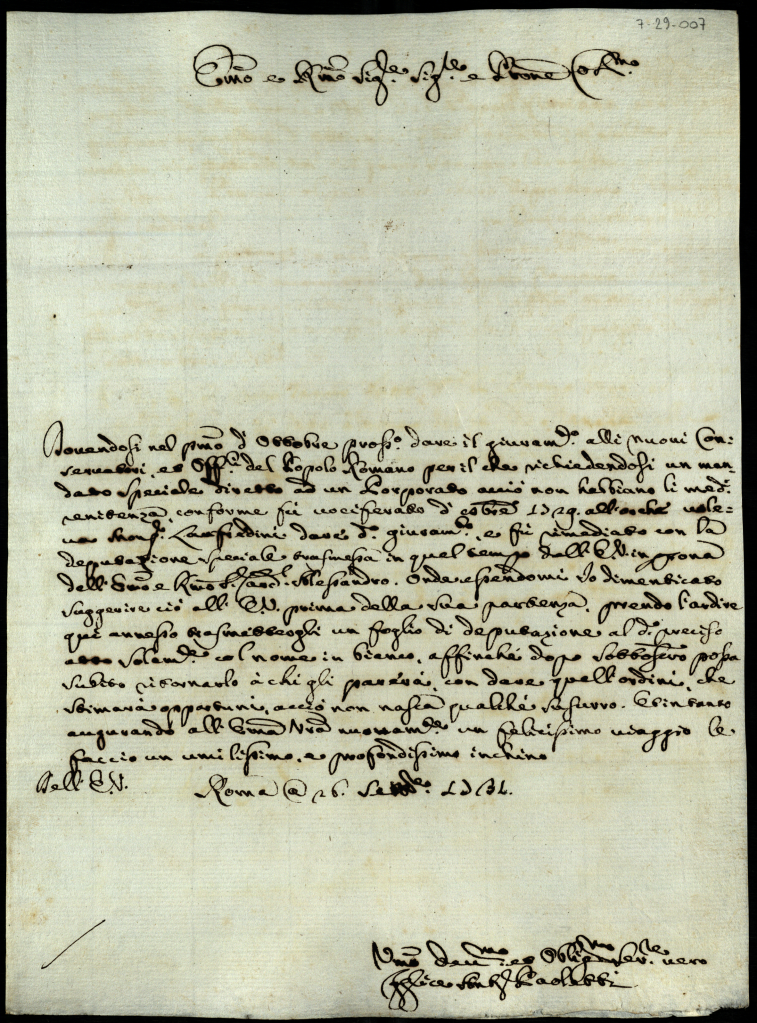 7-29-007
Emo e Rmo Sig.re Sig.re e Prone Colmo
Dovendosi nel pmo d'Ottobre pross.o dare il giuram.to alli nuovi Con=
servatori, et Off.li del Popolo Romano per il che richiedendosi un man=
dato speciale diretto ad un Porporato acciò non habbiano li med.mi
renitenza, conforme fù vociferato d' 1729. allorche vole=
va Mons.r Lanfredini dare d.o giuram.to, e fù rimediato con la
deputazione speciale trasmessa in quel tempo dall'E.V. in prona
dell'Emo e Rmo Alessandro. Onde essendomi Io dimenticato
suggerire ciò all'E.V. prima della sua partenza, prendo l'ardire
qui annesso trasmetterogli un foglio di deputazione al d.o preciso
atto solam.te col nome in bianco, affinché dopo sottoscritto possa
subito ritornarlo à chi gli parerà, con dare quell'ordini, che
stimarà opportuni, acciò non nascia qualche susurro. Et intanto
augurando all'Emza Vra nuovam.te un felicissimo viaggio le
faccio un umilissimo, e profondissimo inchino
Dell'E.V. Roma @ 26. Sett.re 1731.
Umo Devmo et Obligmo Ser.re vero
Felice Paolucci